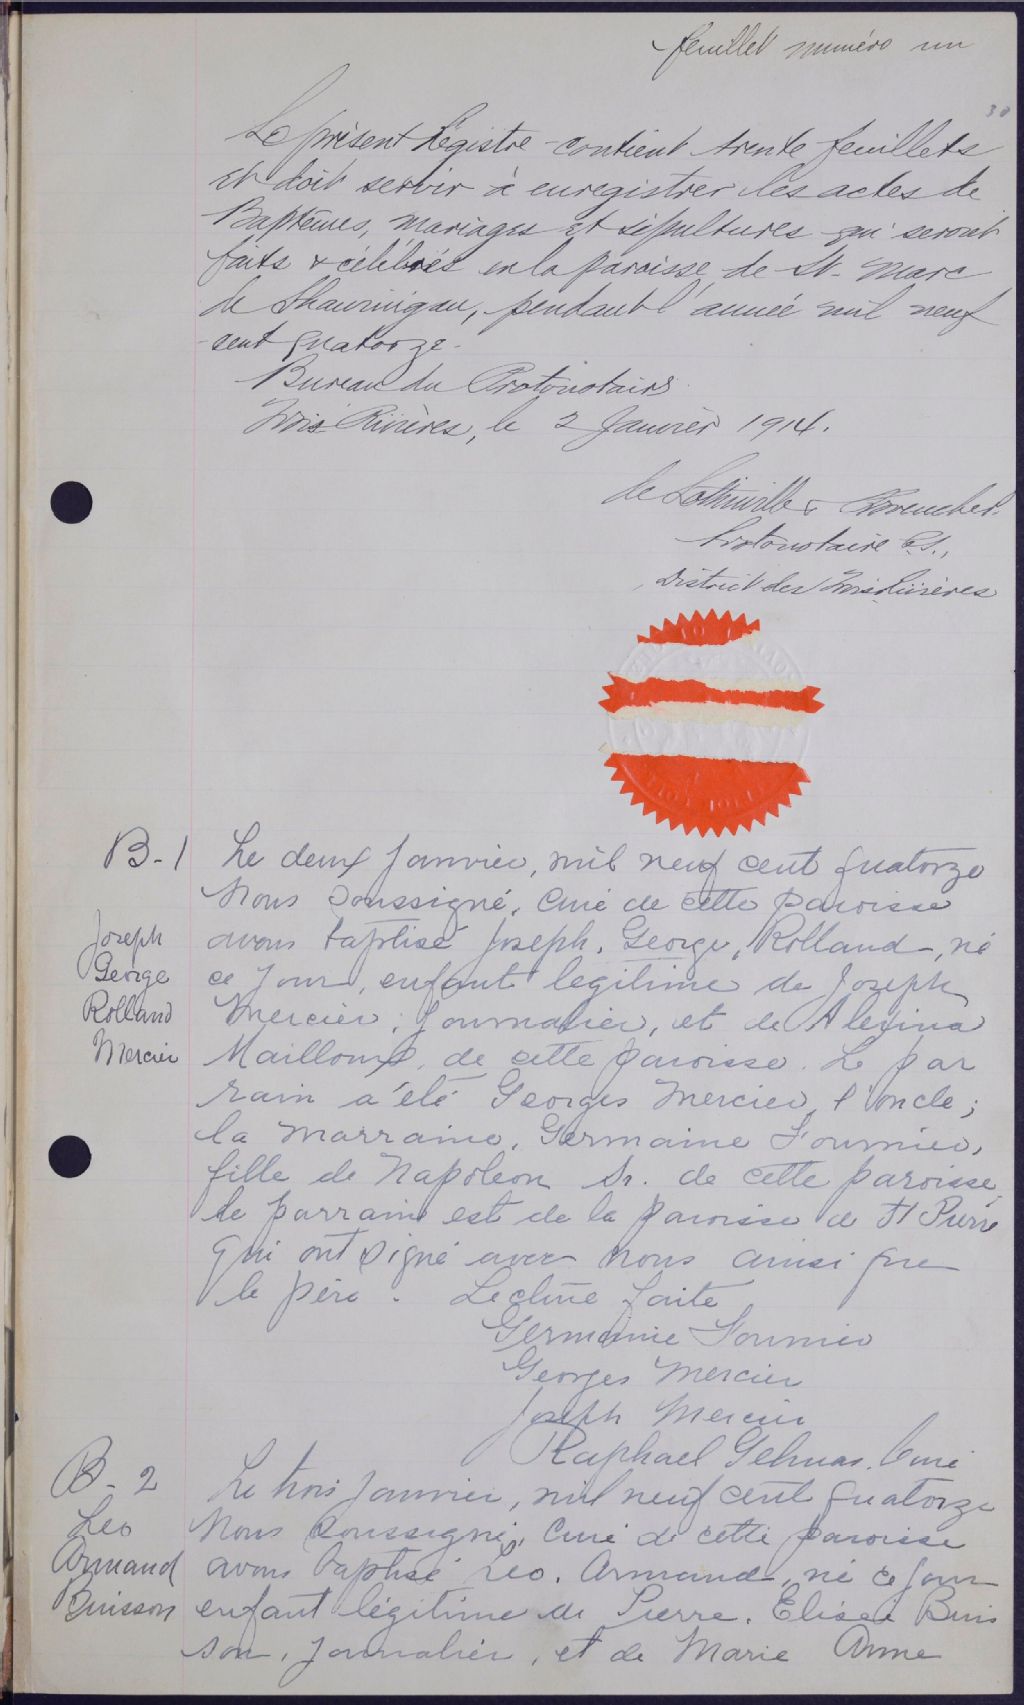 feuillet numéro un
30
Le présent Régistre contient trente feuillets
et doit servir à enregistrer les actes de
Baptêmes, mariages et sépultures qui seront
faits & célébrés en la paroisse de St-Marc
de Shawinigan, pendant l'année mil neuf
cent quatorze.
Bureau du Protonotaire
Trois Rivières, le 2 Janvier 1914.
Protonotaire C.S.,
District des Trois Rivières
B-1
Joseph
George
Rolland
Mercier
Le deux Janvier, mil neuf cent quatorze
Nous soussigné, Curé de cette paroisse
avons baptisé Joseph, George, Rolland, né
ce jour, enfant légitime de Joseph
Mercier, journalier, et de Alexina
Mailloux, de cette paroisse. Le par
rain a été Georges Mercier, l'oncle;
la marraine, Germaine Fournier,
fille de Napoléon Sr. de cette paroisse,
le parrain est de la paroisse de St Pierre
qui ont signé avec nous ainsi que
le père. Lecture faite
Germaine Fournier
Georges Mercier
Joseph Mercier
Raphael Gelinas, Curé
B-2
Leo
Armand
Buisson
Le trois Janvier, mil neuf cent quatorze
Nous soussigné, Curé de cette paroisse
avons baptisé Leo, Armand, né ce jour
enfant légitime de Pierre, Elisée Buis
son, journalier, et de Marie Anne